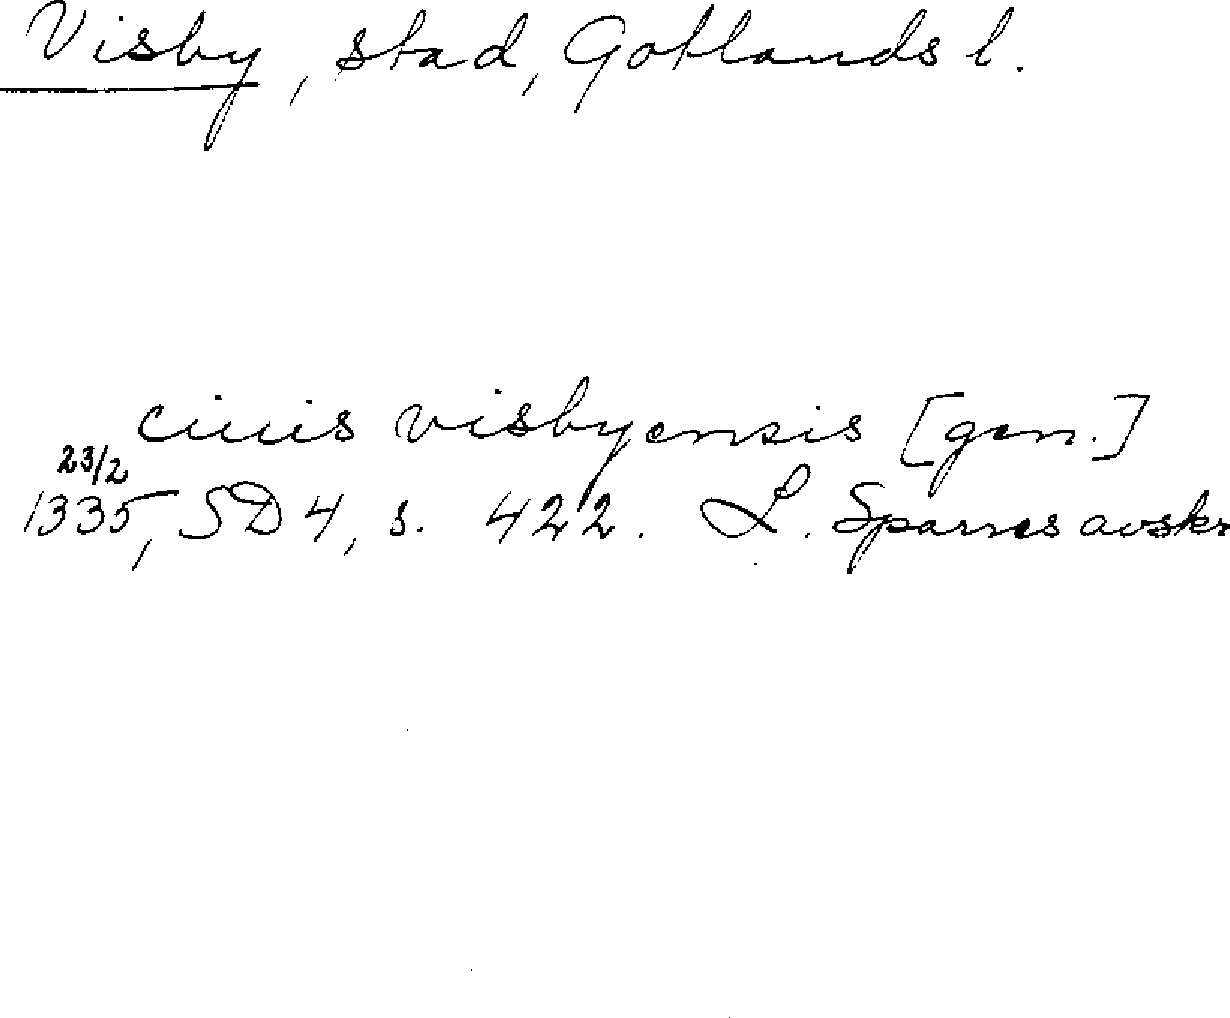 Visby, stad, Gotlands l.
ciuis visbyensis [gen.]
23/2
1335, SD 4, s. 422. L. Sparres avskr